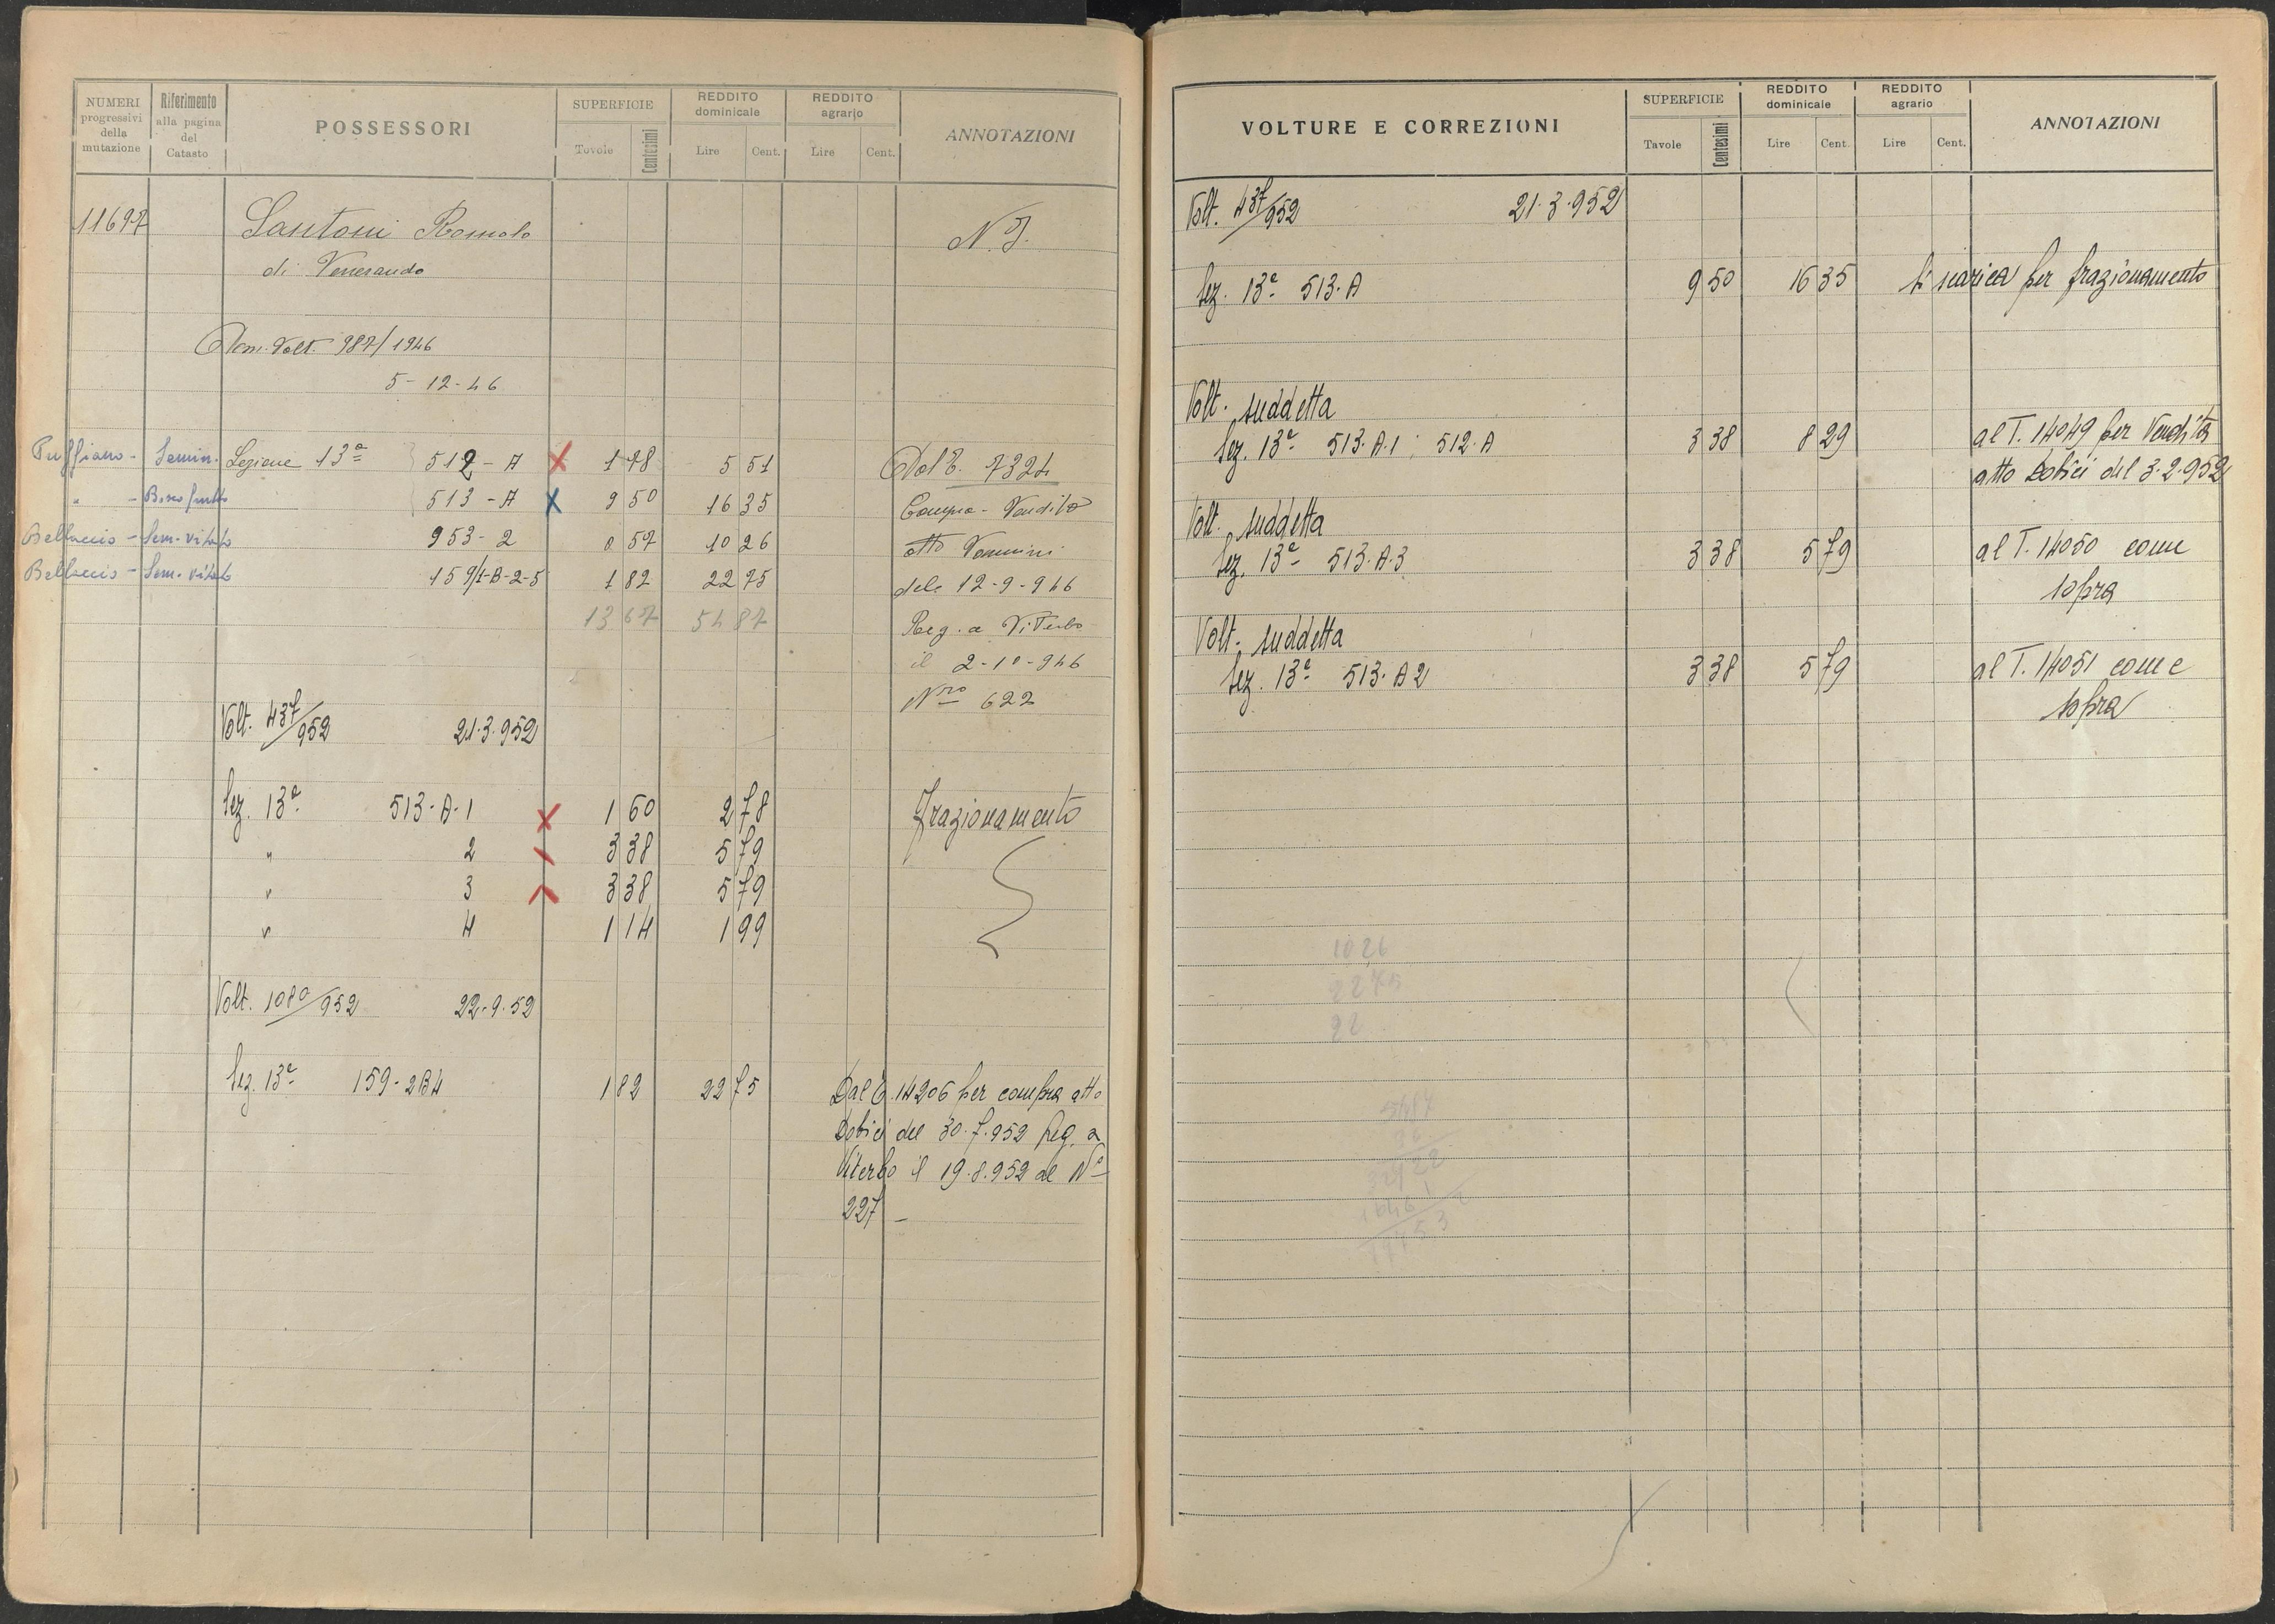 NUMERI progressivi della mutazione
Riferimento alla pagina del Catasto
POSSESSORI
SUPERFICIE
Tavole Centesimi
REDDITO dominicale
Lire Cent.
REDDITO agrario
Lire Cent.
ANNOTAZIONI
11697 Santoni Romolo N.I.
di Venerando
Volt. 987/1946
5-12-46
Puffiano - Semin. Sezione 13ª 512-A X 1 78 5 51 Dal T. 7324
" - Bosco frutto 513-A X 9 50 16 35 Compra-Vendita
Bellaccio - Sem. vitato 953-2 0 57 10 26 atto Vannini
Bellaccio - Sem. vitato 159/1-B-2-5 1 82 22 75 del 12-9-946
13 67 54 87 Reg. a Viterbo
il 2-10-946
Nro 622
Volt. 437/952 21.3.952
Sez. 13ª 513-A-1 X 1 60 2 78 Frazionamento
" 2 3 38 5 79
" 3 3 38 5 79
" 4 1 14 1 99
Volt. 1080/952 22.9.52
Sez. 13ª 159-2B4 1 82 22 75 Dal T. 14206 per compra atto
Dobici del 30.7.952 Reg. a
Viterbo il 19.8.952 al Nº
227 -
VOLTURE E CORREZIONI
SUPERFICIE
Tavole Centesimi
REDDITO dominicale
Lire Cent.
REDDITO agrario
Lire Cent.
ANNOTAZIONI
Volt. 437/952 21.3.952
Sez. 13ª 513.A 9 50 16 35 Si scarica per frazionamento
Volt. suddetta
Sez. 13ª 513.A.1; 512.A 3 38 8 29 al T. 14049 per Vendita
atto Dobici del 3.2.952
Volt. suddetta
Sez. 13ª 513.A.3 3 38 5 79 al T. 14050 come
sopra
Volt. suddetta
Sez. 13ª 513.A2 3 38 5 79 al T. 14051 come
sopra
1026
2275